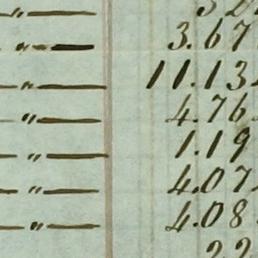 —"—
—"— 3.67
—"— 11.13
—"— 4.76
—"— 1.19
—"— 4.07
—"— 4.08